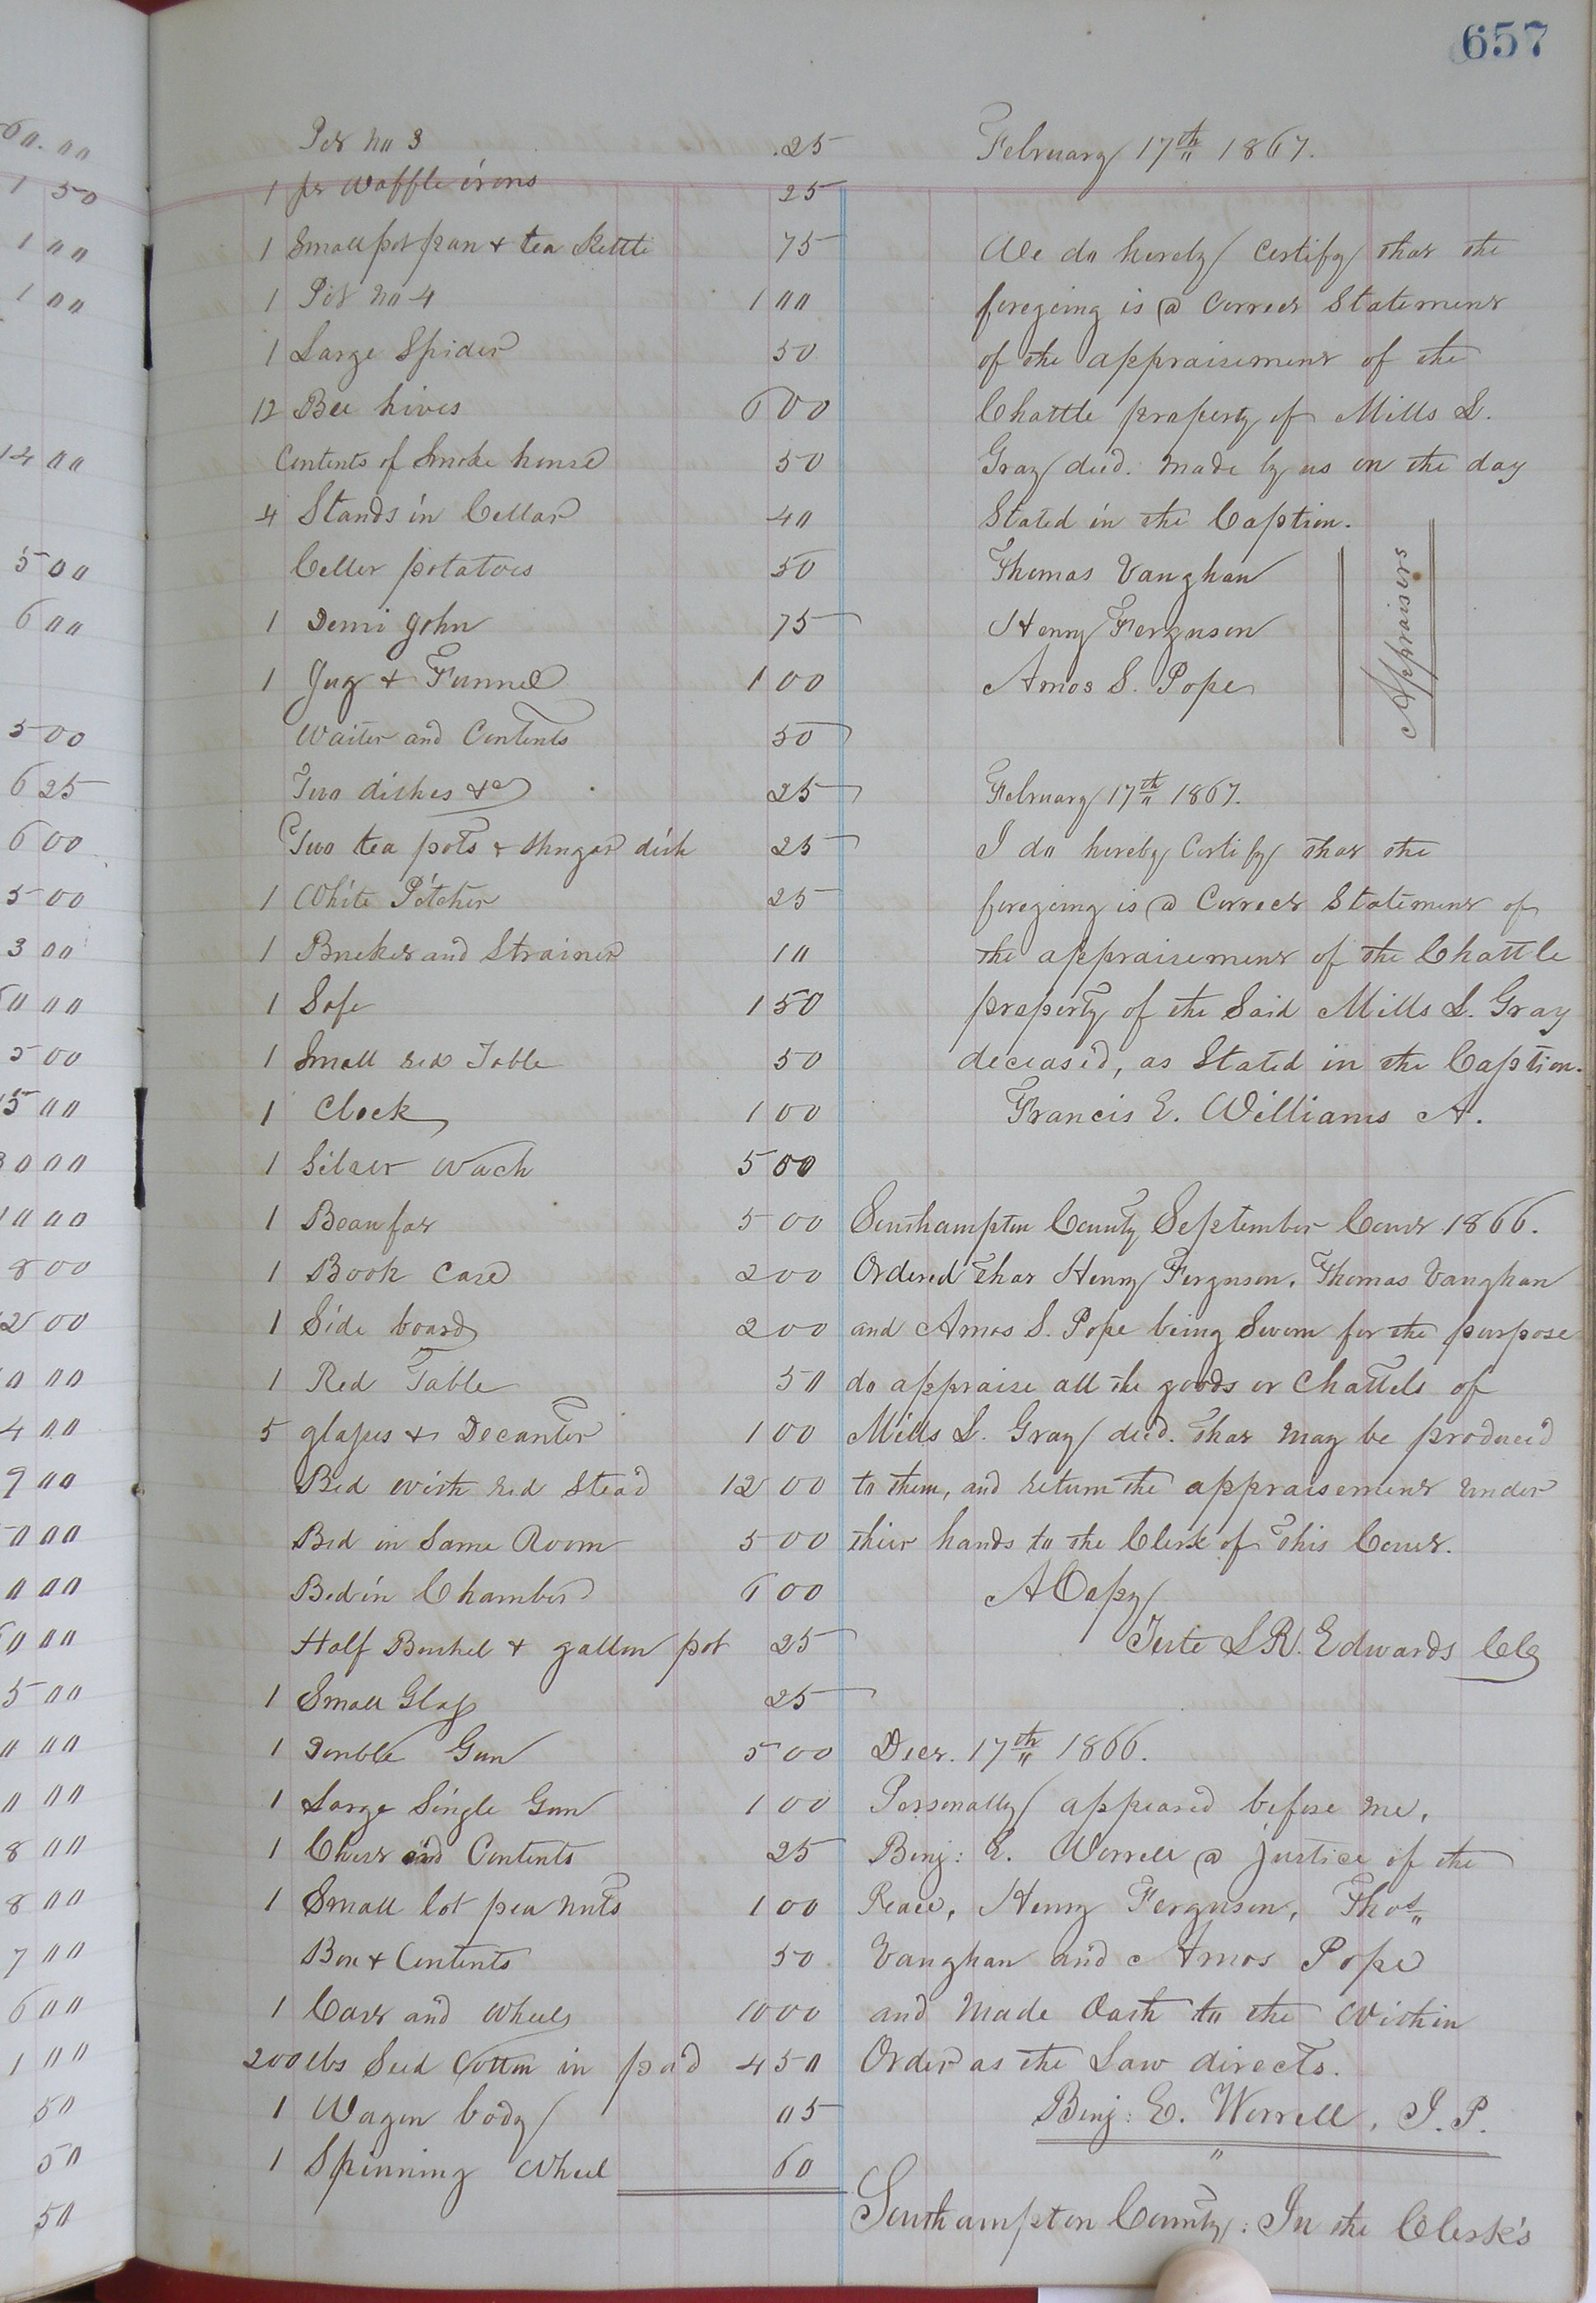 657
Pot no 3 .25
1 pr Waffle irons 25
1 Small pot pan & tea Kettle 75
1 Pot no 4 1 00
1 Large Spider 50
12 Bee hives 6 00
Contents of Smoke house 50
4 Stands in Cellar 40
Celler potatoes 50
1 Demi John 75
1 Jug & Funnel 1 00
Waiter and Contents 50
Two dishes &c 25
Two tea pots & Shugar dish 25
1 White Pitcher 25
1 Bucket and Strainer 10
1 Safe 1 50
1 Small red Table 50
1 Clock 1 00
1 Silver Wach 5 00
1 Beaufat 5 00
1 Book Case 2 00
1 Side board 2 00
1 Red Table 50
5 glasses & Decanter 1 00
Bed with red Stead 12 00
Bed in Same Room 5 00
Bed in Chamber 6 00
Half Boushel & gallon pot 25
1 Small Glass 25
1 Double Gun 5 00
1 Large Single Gun 1 00
1 Chest and Contents 25
1 Small lot pea nuts 1 00
Box & Contents 50
1 Cart and Wheels 10 00
200 lbs Seed Cotton in pod 4 50
1 Wagon body 05
1 Spinning Wheel 60
February 17th 1867.
We do hereby Certify that the
foregoing is a Correct Statement
of the appraisement of the
Chattle property of Mills L.
Gray decd. made by us on the day
Stated in the Caption.
Thomas Vaughan
Henry Ferguson
Amos S. Pope
Appraisers
February 17th 1867.
I do hereby Certify that the
foregoing is a Correct Statement of
the appraisement of the Chattle
property of the Said Mills L. Gray
deceas'd, as Stated in the Caption.
Francis E. Williams A.
Southampton County September Court 1866.
Ordered that Henry Ferguson, Thomas Vaughan
and Amos S. Pope being Sworn for the purpose
do appraise all the goods or Chattels of
Mills L. Gray decd. that may be produced
to them, and return the appraisement under
their hands to the Clerk of This Court.
A Copy
Teste L R. Edwards Clk
Decr. 17th 1866.
Personally appeared before me,
Benj: E. Worrell a justice of the
Peace, Henry Ferguson, Thos
Vaughan and Amos Pope
and Made Oath to the Within
Order as the Law directs.
Benj: E. Worrell, J. P.
Southampton County: In the Clerk's